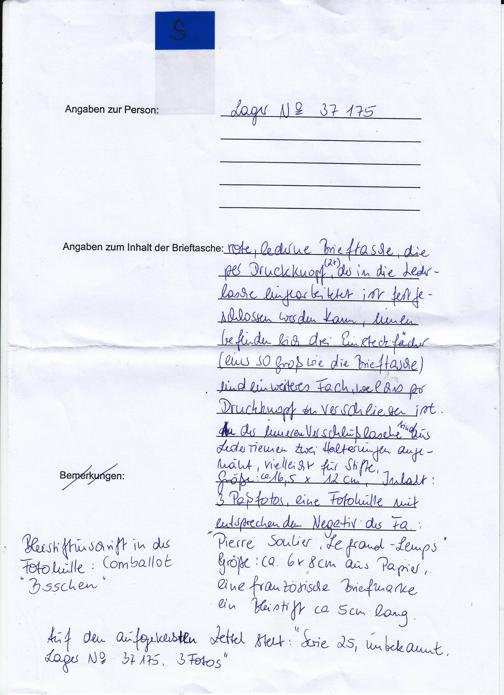 S
Angaben zur Person: Lager № 37 175
Angaben zum Inhalt der Brieftasche: rote, lederne Brieftasche, die
per Druckknopf (2x), der in die Leder-
lasche eingearbeitet ist festge-
schlossen werden kann, innen
befinden sich drei Einsteckfächer
(eins so groß wie die Brieftasche)
und ein weiteres Fach, welches per
Druckknopf zu verschließen ist.
An der inneren Verschlußlasche sind aus
Lederriemen zwei Halterungen ange-
näht, vielleicht für Stifte,
Größe: ca. 16,5 x 12 cm, Inhalt:
3 Paßfotos, eine Fotohülle mit
entsprechenden Negativ der Fa:
"Pierre Soulier, Le grand-Lemps"
Größe: ca. 6 x 8 cm aus Papier,
eine französische Briefmarke
ein Bleistift ca 5cm lang.
Bemerkungen:
Bleistiftinschrift in der
Fotohülle: Comballot
Auf den aufgeklebten Zettel steht: "Serie 25, unbekannt.
Lager № 37 175. 3 Fotos"